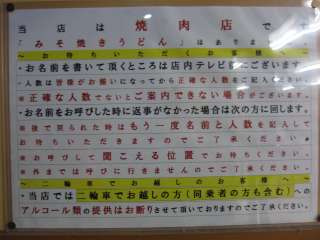 当店は焼肉店です
「みそ焼きうどん」はありま
～お待ちいただくお客様へ～
・お名前を書いて頂くところは店内テレビ前にございます
・人数は皆様がお揃いになってから正確な人数をご記入ください。
※正確な人数でないとご案内できない場合がございます。
・お名前をお呼びした時に返事がなかった場合は次の方に回します。
※後で戻られた時はもう一度名前と人数を記入して
お待ちいただきますのでご了承ください。
※お呼びして聞こえる位置でお待ちください。
※外までは呼びに行きませんのでご了承ください。
～二輪車でお越しのお客様へ～
・当店では二輪車でお越しの方（同乗者の方も含む）への
アルコール類の提供はお断りさせて頂いておりますのでご了承ください。